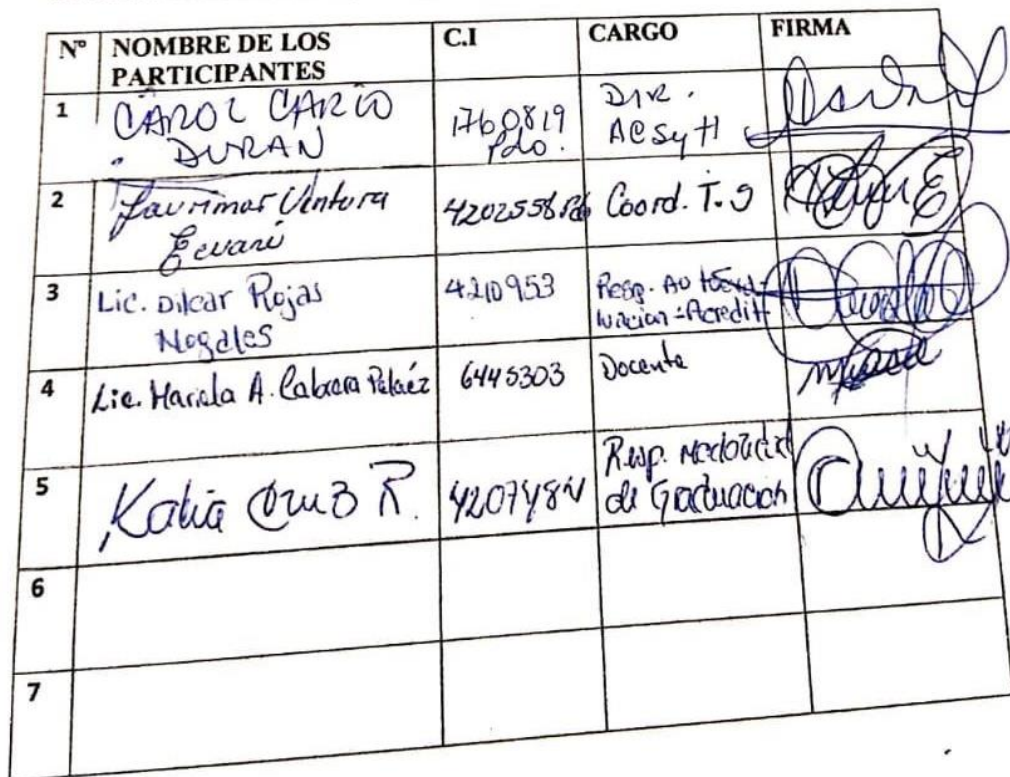 Nº NOMBRE DE LOS PARTICIPANTES C.I CARGO FIRMA
1 CAROL CARLO DURAN 1760819 Pdo. DIR. ACSyH
2 Laurimar Ventura 4202558 Pdo Coord. T.S
3 Lic. Dilcar Rojas Nogales 4210953 Resp. Acredit
4 Lic. Mariela A. Cabrera Peláez 6445303 Docente
5 Katia Cruz R. 4207484 Resp. Modalidad de Graduacion
6
7